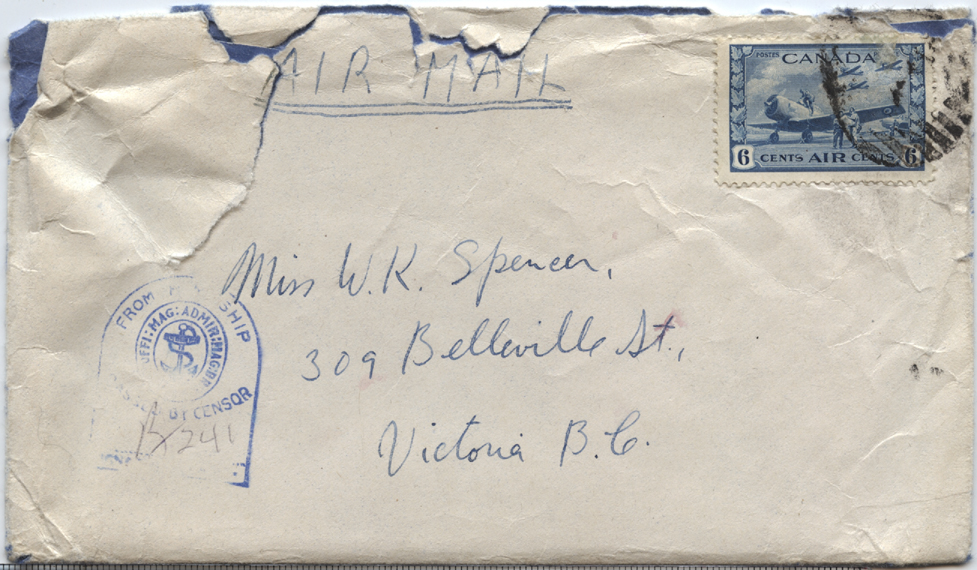 AIR MAIL
POSTES CANADA
6 CENTS AIR CENTS 6
Miss W.K. Spencer,
309 Belleville St.,
Victoria B.C.
FROM SHIP
OFFI: MAG: ADMIR: MAG: BR
BY CENSOR
241